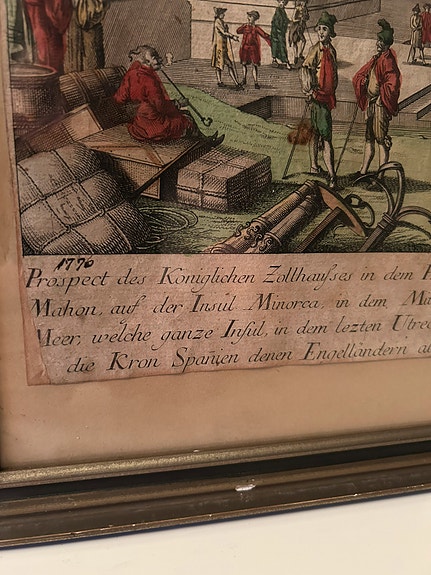 1776
Prospect des Königlichen Zollhaußes in dem
Mahon, auf der Insul Minorca, in dem
Meer, welche ganze Insul, in dem lezten
die Kron Spanien denen Engelländern